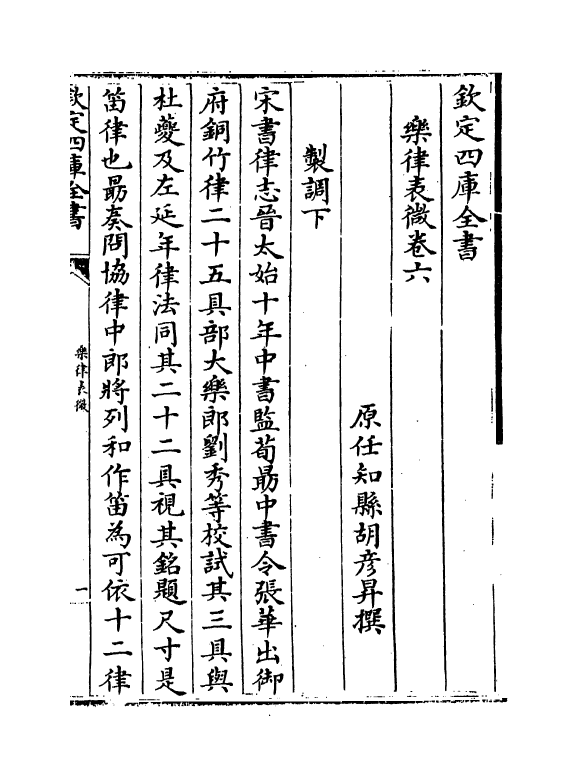 欽定四庫全書
樂律表微卷六
原任知縣胡彦昇撰
製調下
宋書律志晉太始十年中書監荀勗中書令張華出御
府銅竹律二十五具部大樂郎劉秀等校試其三具與
杜夔及左延年律法同其二十二具視其銘題尺寸是
笛律也勗奏問協律中郎將列和作笛為可依十二律
欽定四庫全書
樂律表微
一